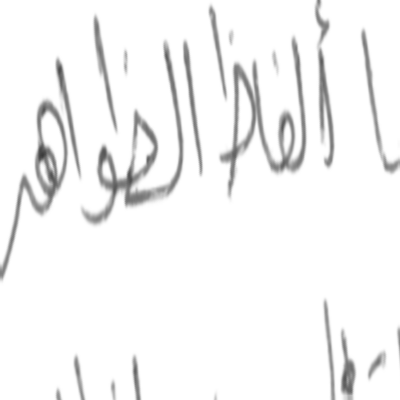 ألفاظ الظواهر